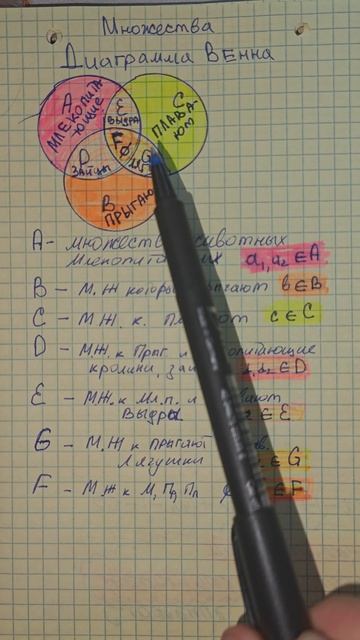 Множества
Диаграмма Венна
A
МЛЕКОПИТА-
ЮЩИЕ
E
ВЫДРА
C
ПЛАВА-
ЮТ
D
ЗАЙЦЫ
F
G
B
ПРЫГАЮ
A - множеств животных
Млекопита их a₁, a₂ ∈ A
B - М.Ж которы гают b ∈ B
C - МЖ. к. Пл ют c ∈ C
D - МЖ. к Прыг. и питающие
кролики, за ∈ D
E - МЖ. к Мл.п. и ают
Выдра ∈ E
G - М.Ж к прыгают в.
Лягушки ∈ G
F - МЖ к М, Пр, Пл ∈ F